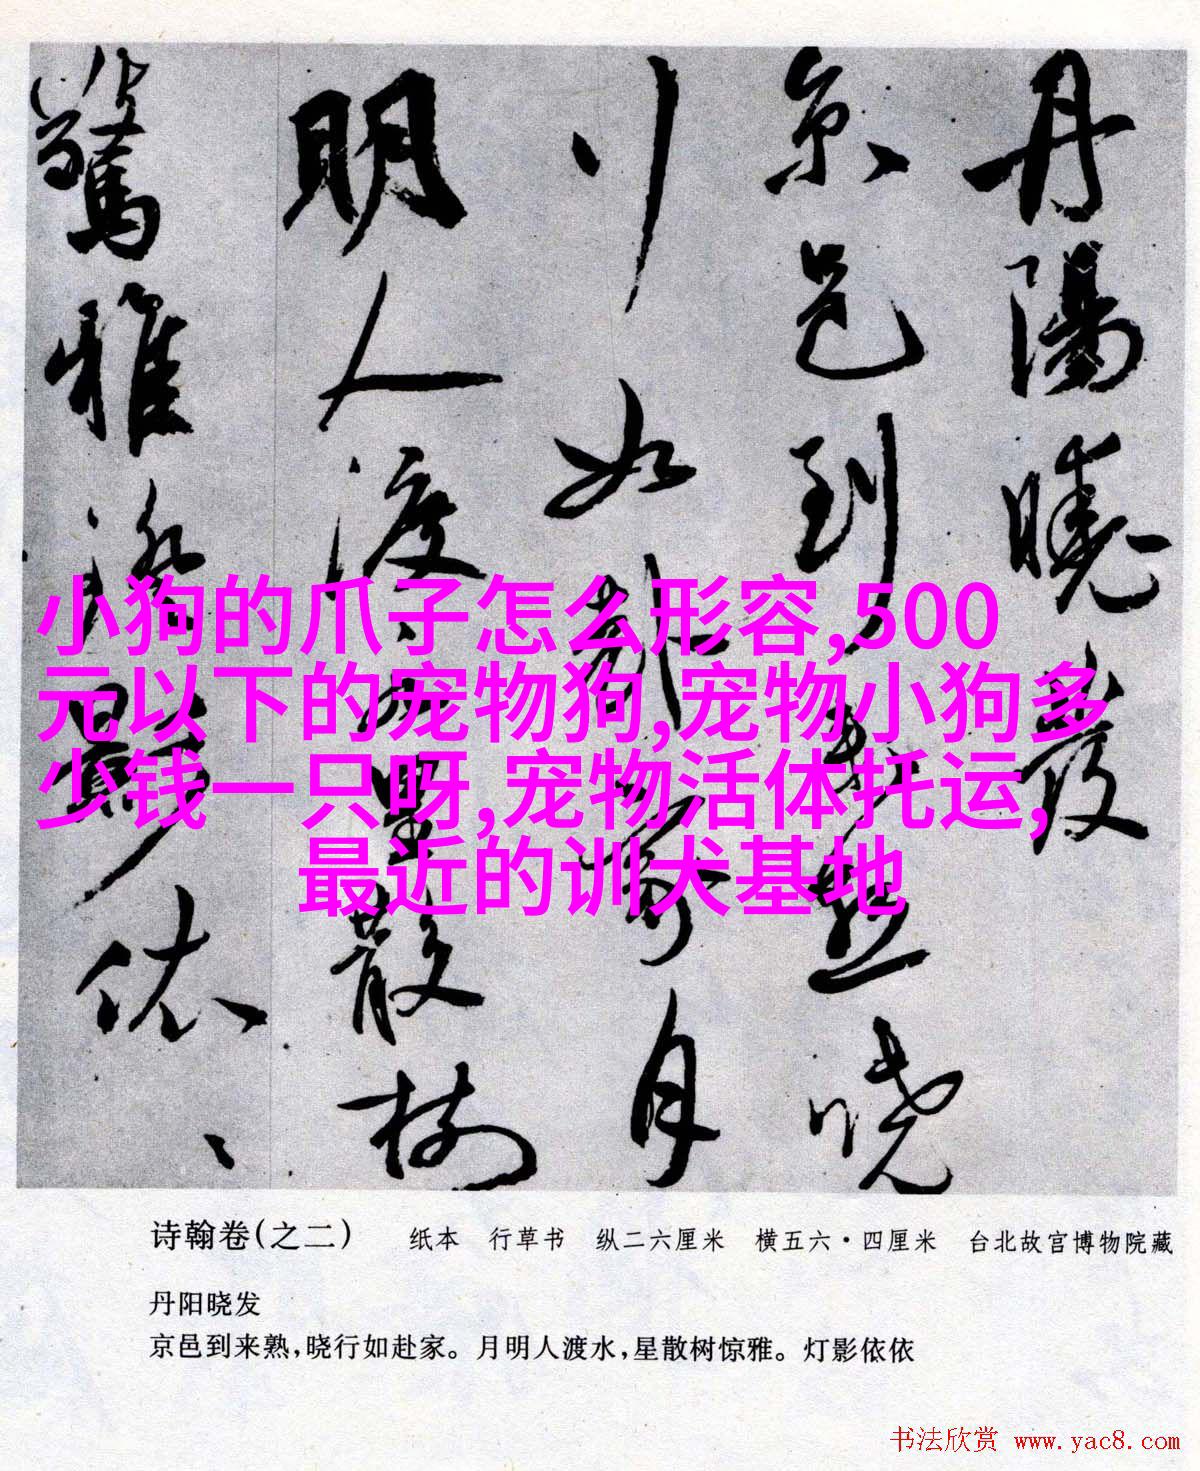 丹陽曉發
京邑到来熟晓
行如赴家月
明人渡水星散樹
驚雅燈影依、
小狗的爪子怎么形容,500
元以下的宠物狗,宠物小狗多
少钱一只呀,宠物活体托运,
最近的训犬基地
诗翰卷(之二) 纸本 行草书 纵二六厘米 横五六·四厘米 台北故宫博物院藏
丹阳晓发
京邑到来熟,晓行如赴家。月明人渡水,星散树惊雅。灯影依依
书法欣赏 www.yac8.com